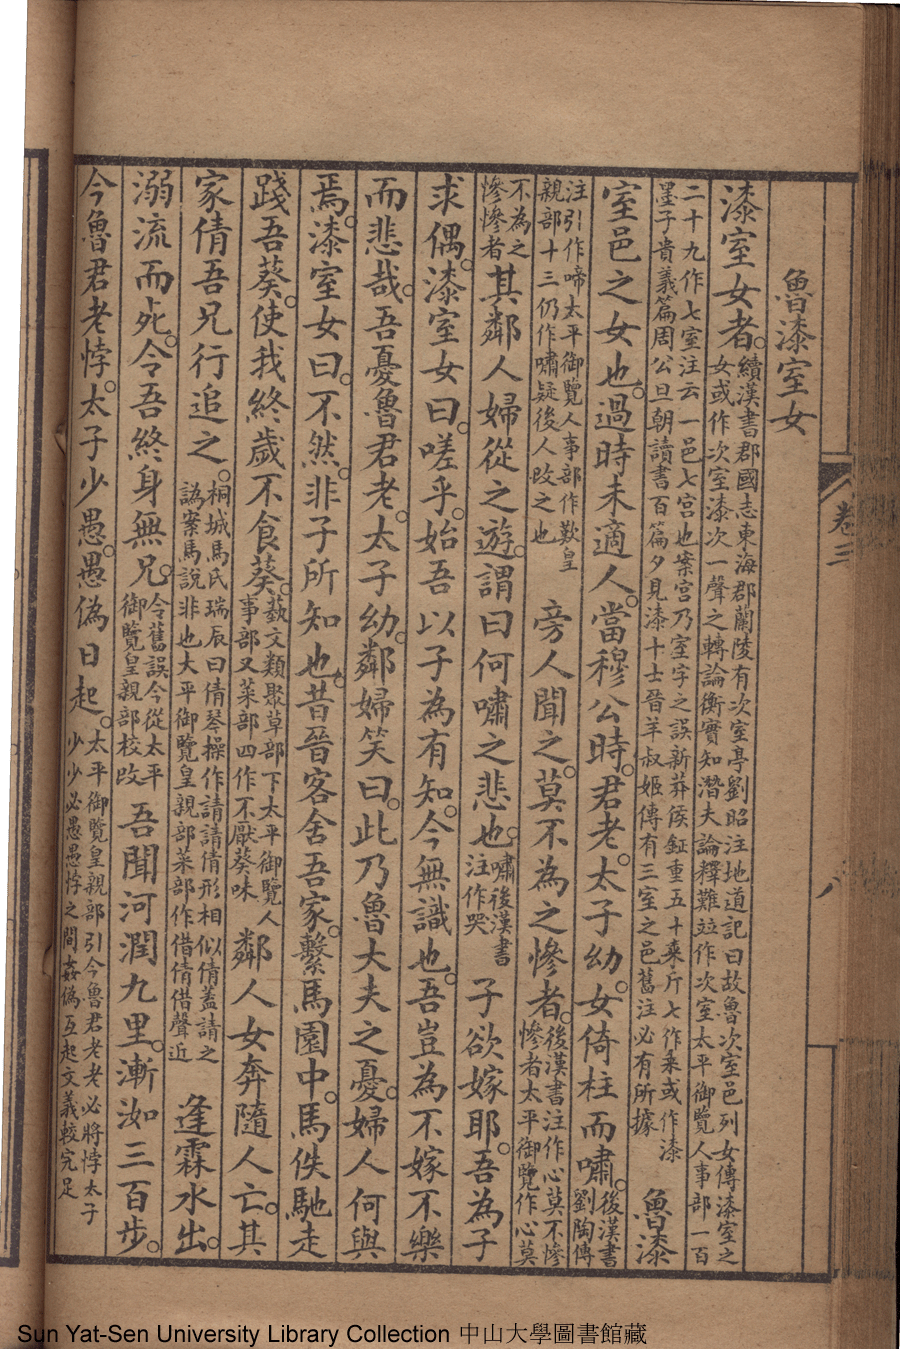 魯漆室女
漆室女者。續漢書郡國志東海郡蘭陵有次室亭劉昭注地道記曰故魯次室邑列女傳漆室之女或作次室漆次一聲之轉論衡實知潛夫論釋難竝作次室太平御覽人事部一百
二十九作七室注云一邑七宮也案宮乃室字之誤新莽侯鉦重五十桼斤七作桼或作漆墨子貴義篇周公旦朝讀書百篇夕見漆十士晉羊叔姬傳有三室之邑舊注必有所據魯漆
室邑之女也。過時未適人。當穆公時。君老。太子幼。女倚柱而嘯。後漢書劉陶傳
注引作啼太平御覽人事部作歎皇親部十三仍作嘯疑後人改之也旁人聞之。莫不為之慘者。後漢書注作心莫不慘慘者太平御覽作心莫
不為之慘慘者其鄰人婦從之遊。謂曰何嘯之悲也。嘯後漢書注作哭子欲嫁耶。吾為子
求偶。漆室女曰。嗟乎。始吾以子為有知。今無識也。吾豈為不嫁不樂
而悲哉。吾憂魯君老。太子幼。鄰婦笑曰。此乃魯大夫之憂。婦人何與
焉。漆室女曰。不然。非子所知也。昔晉客舍吾家。繫馬園中。馬佚馳走
踐吾葵。使我終歲不食葵。蓺文類聚草部下太平御覽人事部又菜部四作不厭葵味鄰人女奔隨人亡。其
家倩吾兄行追之。桐城馬氏瑞辰曰倩琴操作請請倩形相似倩蓋請之譌案馬說非也太平御覽皇親部菜部作借倩借聲近逢霖水出。
溺流而死。令吾終身無兄。令舊誤今從太平御覽皇親部校改吾聞河潤九里。漸洳三百步。
今魯君老悖。太子少愚。愚偽日起。太平御覽皇親部引今魯君老老必將悖太子少少必愚愚悖之間姦偽互起文義較完足
卷三
八
Sun Yat-Sen University Library Collection 中山大學圖書館藏